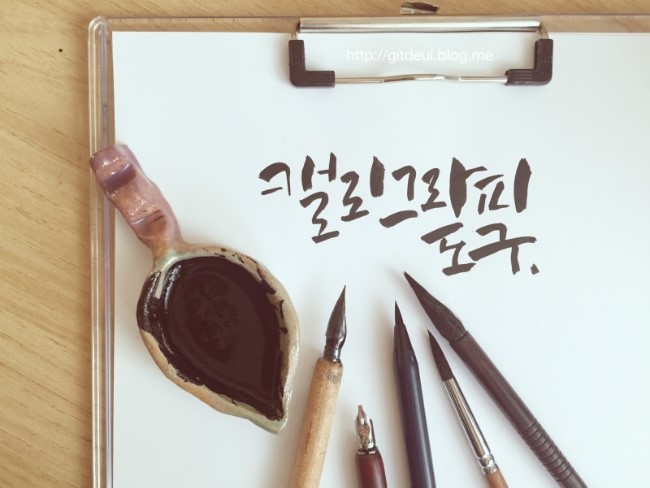 http://gitdeul.blog.me
캘리그라피
도구.